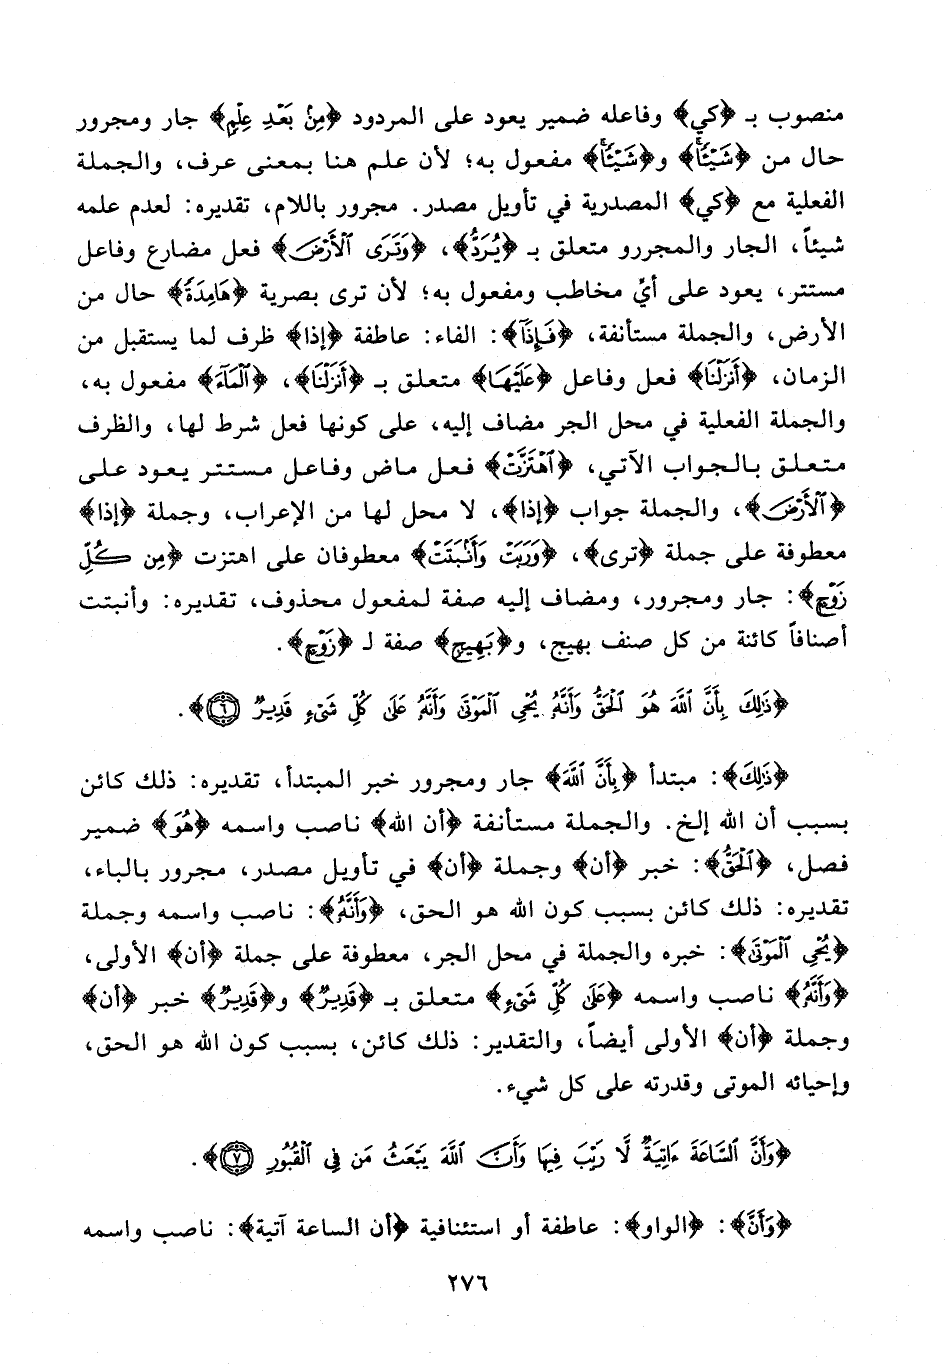 منصوب بـ ﴿كي﴾ وفاعله ضمير يعود على المردود ﴿مِنْ بَعْدِ عِلْمٍ﴾ جار ومجرور
حال من ﴿شَيْئًا﴾ و﴿شَيْئًا﴾ مفعول به؛ لأن علم هنا بمعنى عرف، والجملة
الفعلية مع ﴿كي﴾ المصدرية في تأويل مصدر. مجرور باللام، تقديره: لعدم علمه
شيئاً، الجار والمجررو متعلق بـ ﴿يُرَدُّ﴾، ﴿وَتَرَى ٱلْأَرْضَ﴾ فعل مضارع وفاعل
مستتر، يعود على أيِّ مخاطب ومفعول به؛ لأن ترى بصرية ﴿هَامِدَةً﴾ حال من
الأرض، والجملة مستأنفة، ﴿فَإِذَآ﴾: الفاء: عاطفة ﴿إذا﴾ ظرف لما يستقبل من
الزمان، ﴿أَنزَلْنَا﴾ فعل وفاعل ﴿عَلَيْهَا﴾ متعلق بـ ﴿أَنزَلْنَا﴾، ﴿ٱلْمَآءَ﴾ مفعول به،
والجملة الفعلية في محل الجر مضاف إليه، على كونها فعل شرط لها، والظرف
متعلق بالجواب الآتي، ﴿ٱهْتَزَّتْ﴾ فعل ماض وفاعل مستتر يعود على
﴿ٱلْأَرْضَ﴾، والجملة جواب ﴿إذا﴾، لا محل لها من الإعراب، وجملة ﴿إذا﴾
معطوفة على جملة ﴿ترى﴾، ﴿وَرَبَتْ وَأَنۢبَتَتْ﴾ معطوفان على اهتزت ﴿مِن كُلِّ
زَوْجٍ﴾: جار ومجرور، ومضاف إليه صفة لمفعول محذوف، تقديره: وأنبتت
أصنافاً كائنة من كل صنف بهيج، و﴿بَهِيجٍ﴾ صفة لـ ﴿زَوْجٍ﴾.
﴿ذَٰلِكَ بِأَنَّ ٱللَّهَ هُوَ ٱلْحَقُّ وَأَنَّهُۥ يُحْيِ ٱلْمَوْتَىٰ وَأَنَّهُۥ عَلَىٰ كُلِّ شَىْءٍ قَدِيرٌ ٦﴾.
﴿ذَٰلِكَ﴾: مبتدأ ﴿بِأَنَّ ٱللَّهَ﴾ جار ومجرور خبر المبتدأ، تقديره: ذلك كائن
بسبب أن الله إلخ. والجملة مستأنفة ﴿أن الله﴾ ناصب واسمه ﴿هُوَ﴾ ضمير
فصل، ﴿ٱلْحَقُّ﴾: خبر ﴿أن﴾ وجملة ﴿أن﴾ في تأويل مصدر، مجرور بالباء،
تقديره: ذلك كائن بسبب كون الله هو الحق، ﴿وَأَنَّهُۥ﴾: ناصب واسمه وجملة
﴿يُحْيِ ٱلْمَوْتَىٰ﴾: خبره والجملة في محل الجر، معطوفة على جملة ﴿أن﴾ الأولى،
﴿وَأَنَّهُۥ﴾ ناصب واسمه ﴿عَلَىٰ كُلِّ شَىْءٍ﴾ متعلق بـ ﴿قَدِيرٌ﴾ و﴿قَدِيرٌ﴾ خبر ﴿أن﴾
وجملة ﴿أن﴾ الأولى أيضاً، والتقدير: ذلك كائن، بسبب كون الله هو الحق،
وإحيائه الموتى وقدرته على كل شيء.
﴿وَأَنَّ ٱلسَّاعَةَ ءَاتِيَةٌ لَّا رَيْبَ فِيهَا وَأَنَّ ٱللَّهَ يَبْعَثُ مَن فِى ٱلْقُبُورِ ٧﴾.
﴿وَأَنَّ﴾: ﴿الواو﴾: عاطفة أو استئنافية ﴿أن الساعة آتية﴾: ناصب واسمه
٢٧٦